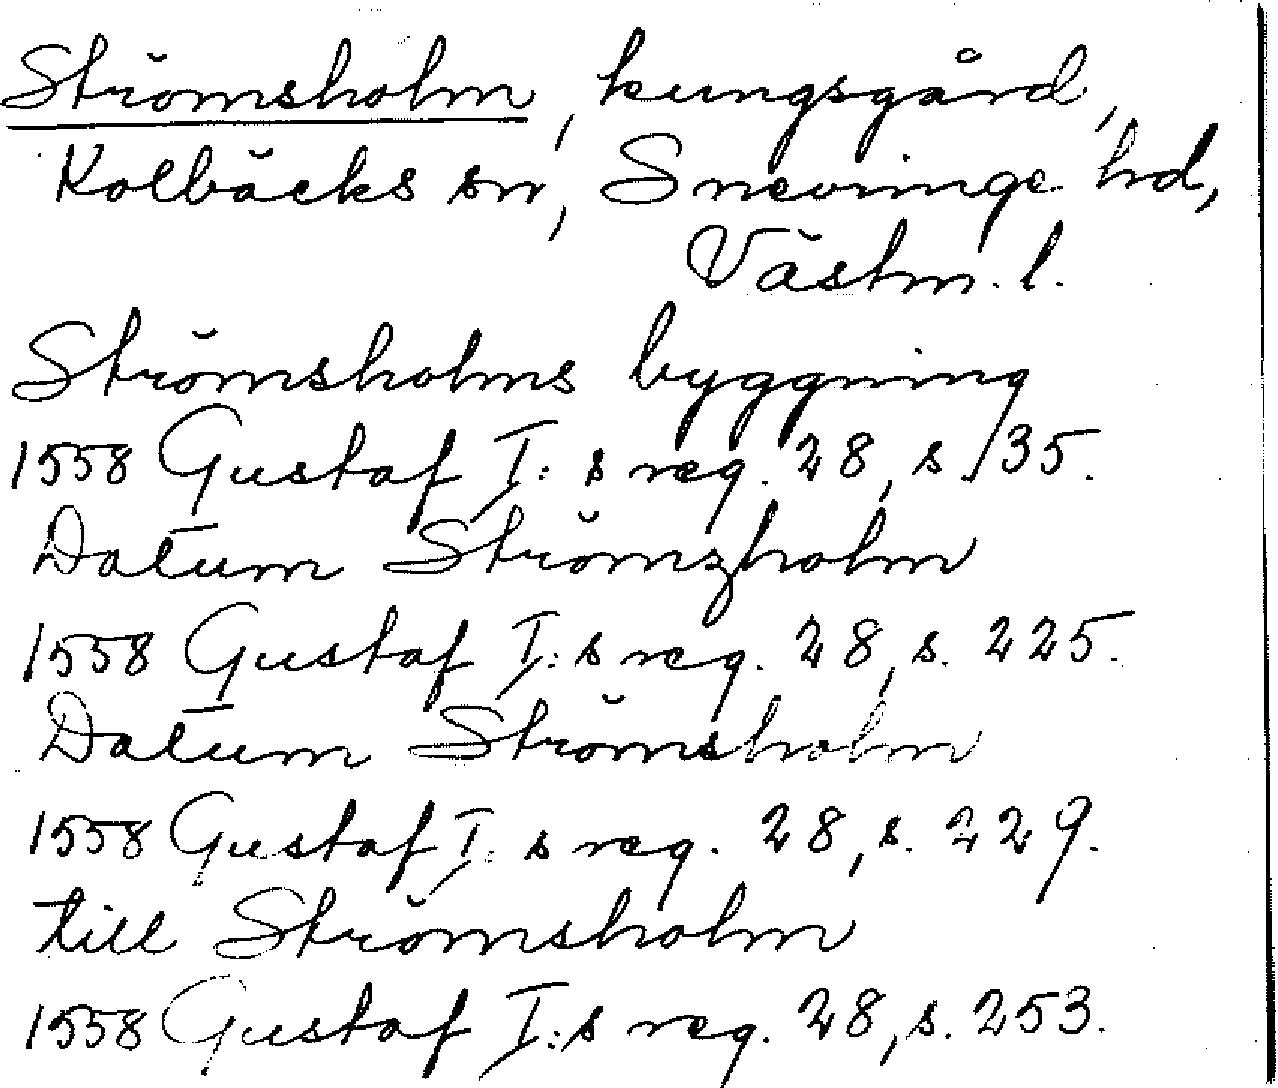 Strömsholm, kungsgård,
Kolbäcks sn, Snevringe hd,
Västm. l.
Strömsholms byggning
1558 Gustaf I:s reg. 28, s. 135.
Datum Strömzholm
1558 Gustaf I:s reg. 28, s. 225.
Datum Strömsholm
1558 Gustaf I:s reg. 28, s. 229.
till Strömsholm
1558 Gustaf I:s reg. 28, s. 253.